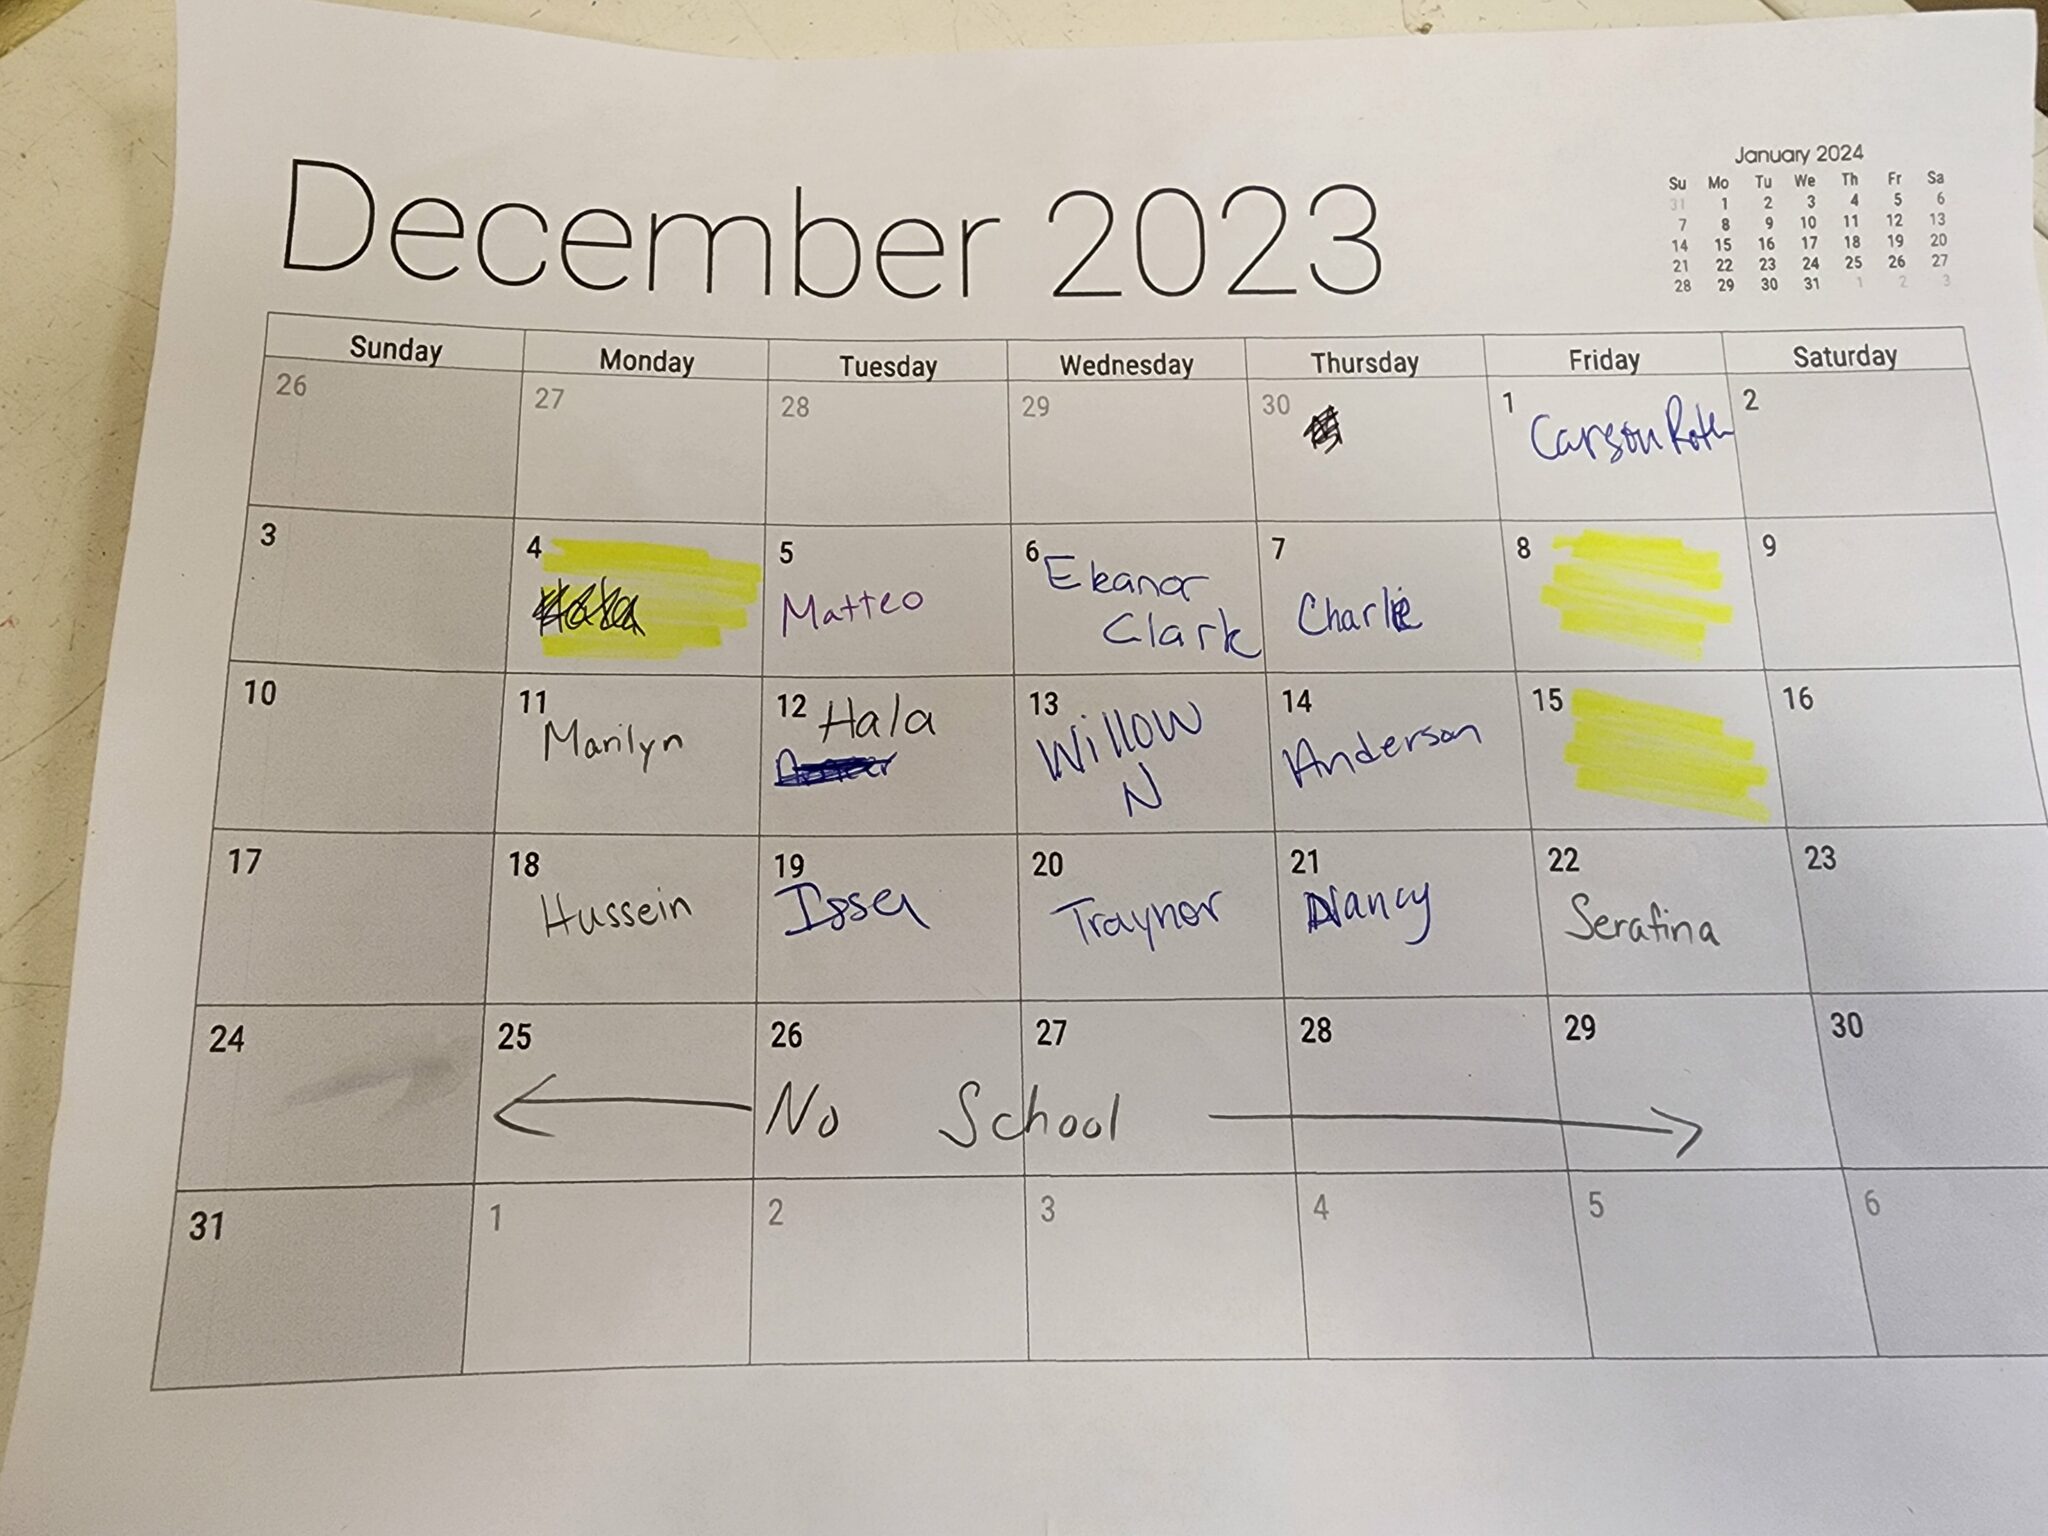 December 2023
January 2024
Su Mo Tu We Th Fr Sa
31 1 2 3 4 5 6
7 8 9 10 11 12 13
14 15 16 17 18 19 20
21 22 23 24 25 26 27
28 29 30 31 1 2 3
Sunday Monday Tuesday Wednesday Thursday Friday Saturday
26 27 28 29 30 1 2
Carson Roth
3 4 5 6 7 8 9
Hala Matteo Eleanor Charlie
Clark
10 11 12 13 14 15 16
Marilyn Hala Willow Anderson
N
17 18 19 20 21 22 23
Hussein Issa Traynor Nancy Serafina
24 25 26 27 28 29 30
No School
31 1 2 3 4 5 6